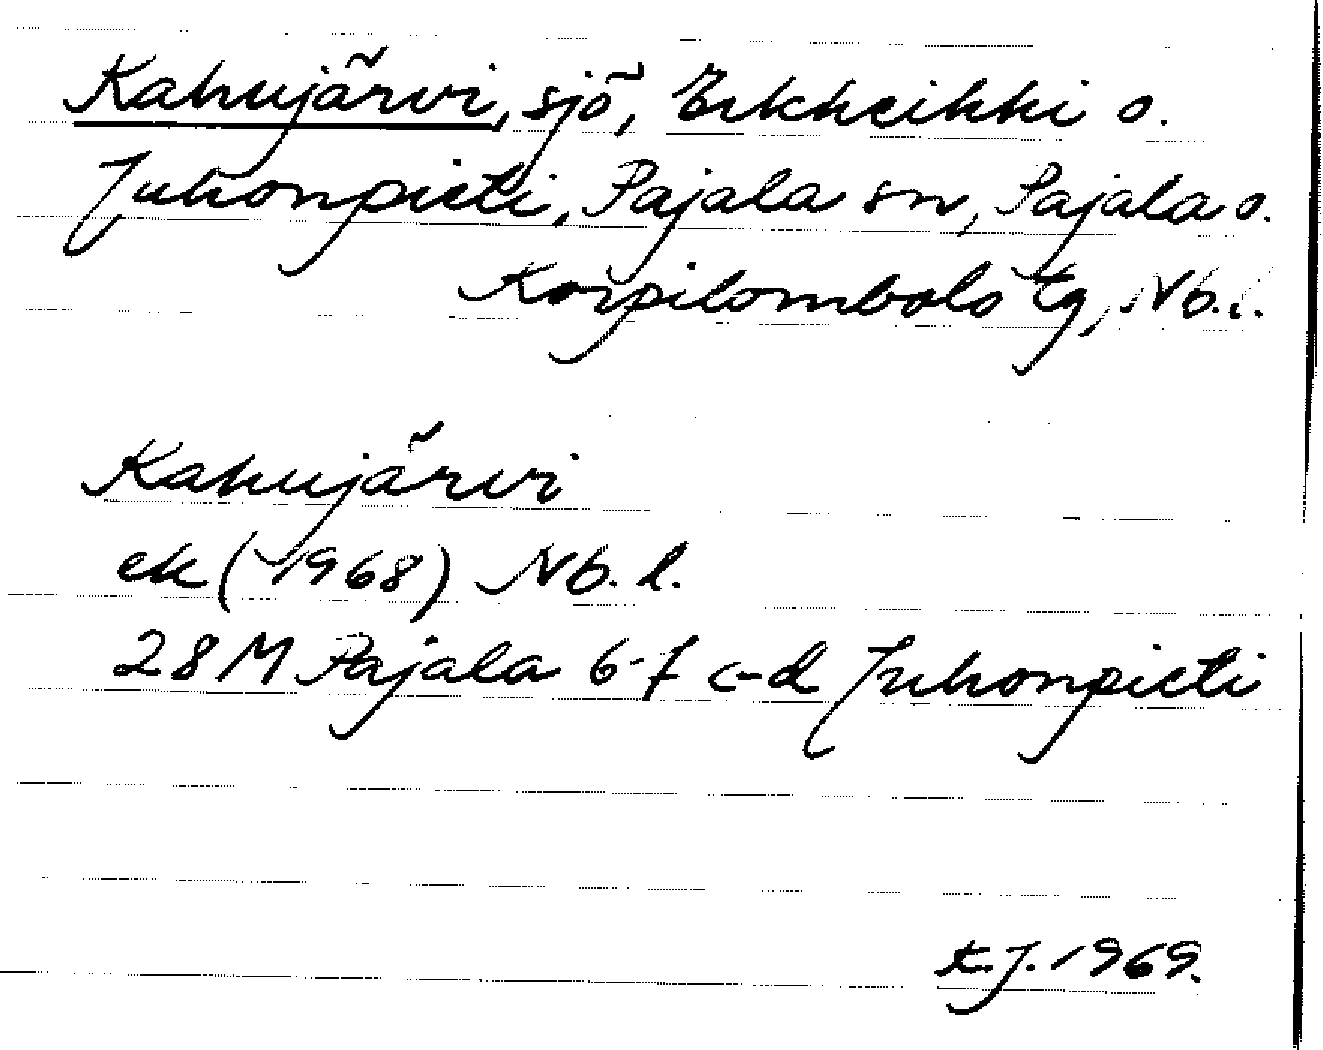 Kahujärvi, sjö, Erkheikki o.
Juhonpieti, Pajala sn, Pajala o.
Korpilombolo tg, Nb.l.
Kahujärvi
ek (1968) Nb. l.
28 M Pajala 6-f c-d Juhonpieti
t.J. 1969.